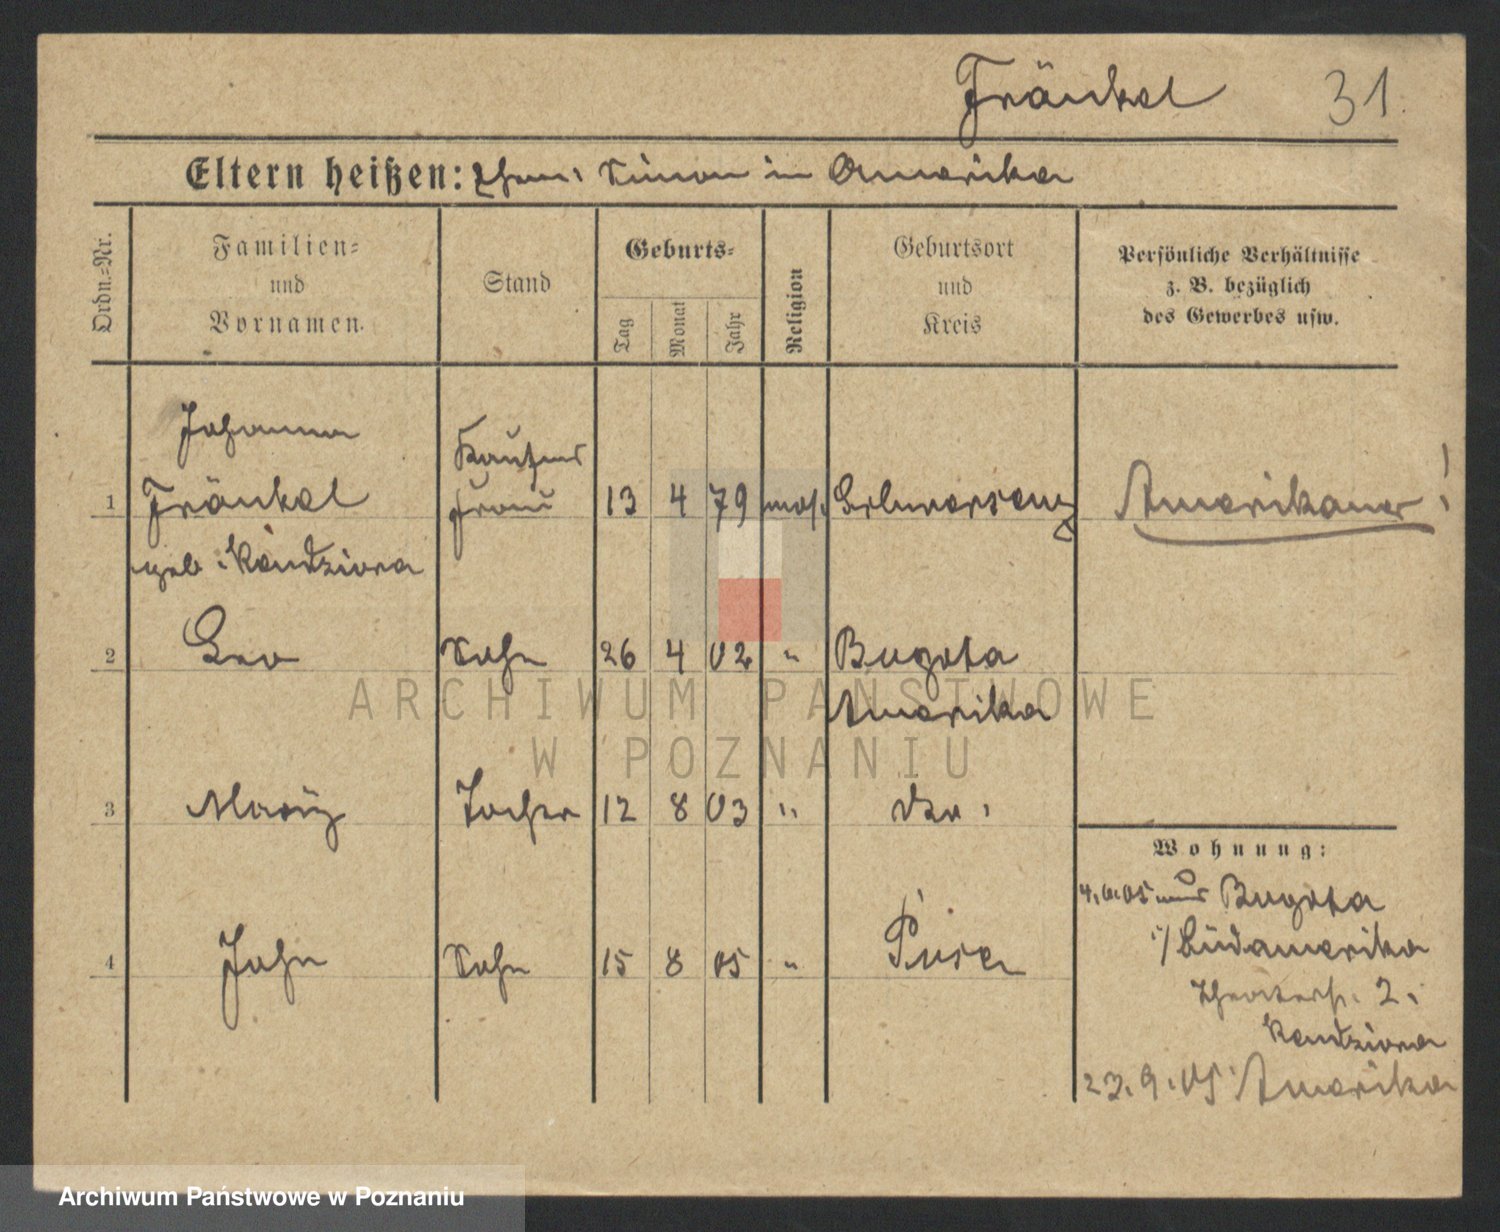 Fränkel 31.
Eltern heißen: Ehem: Simon in Amerika
Ordn.=Nr.
Familien=
und
Vornamen.
Stand
Geburts=
Tag
Monat
Jahr
Religion
Geburtsort
und
Kreis
Persönliche Verhältnisse
z. B. bezüglich
des Gewerbes usw.
Johanna
Kaufms
1 Fränkel frau 13 4 79 mos. Schwersenz Amerikaner!
geb. Kendziora
2 Leo Sohn 26 4 02 " Bugota
Amerika
3 Tochter 12 8 03 " do.
Wohnung:
4.6.05 aus Bugota
Südamerika
4 John Sohn 15 8 05 " Posen
Theaterstr. 2.
Kendziora
23.9.05 Amerika
ARCHIWUM PAŃSTWOWE
W POZNANIU
Archiwum Państwowe w Poznaniu